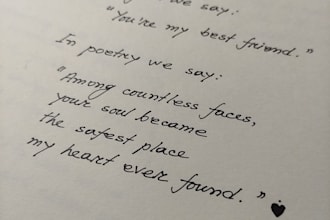 we say:
"You're my best friend."
In poetry we say:
"Among countless faces,
your soul became
the safest place
my heart ever found."